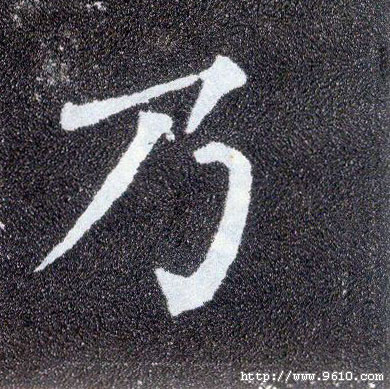 乃
http://www.9610.com